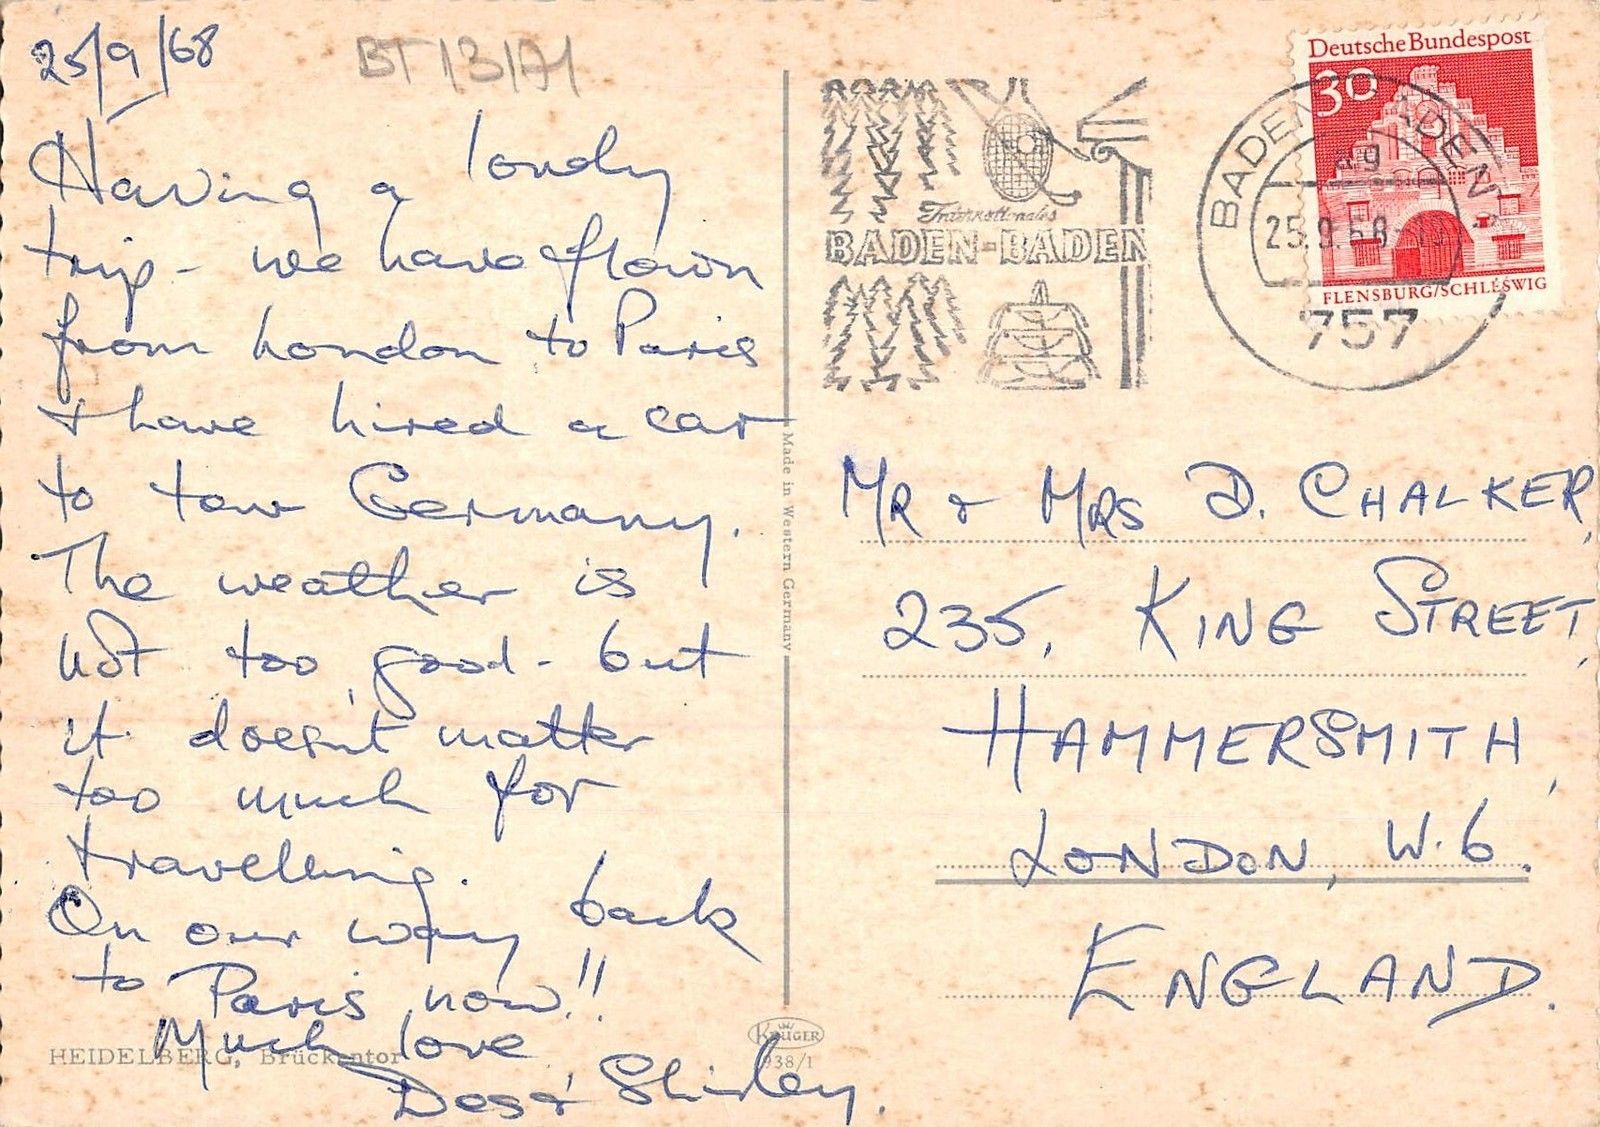 25/9/68
BT 13/A1
Having a lovely
trip - we have flown
from London to Paris
& have hired a car
to tour Germany.
The weather is
not too good - but
it doesn't matter
too much for
travelling.
On our way back
to Paris now!!
Much love
Des & Shirley.
HEIDELBERG, Brückentor
Made in Western Germany
KRÜGER
938/1
Internationales
BADEN-BADEN
BADEN-BADEN
25.9.68
757
Deutsche Bundespost
30
FLENSBURG/SCHLESWIG
MR & MRS D. CHALKER,
235, KING STREET,
HAMMERSMITH,
LONDON, W.6.
ENGLAND.